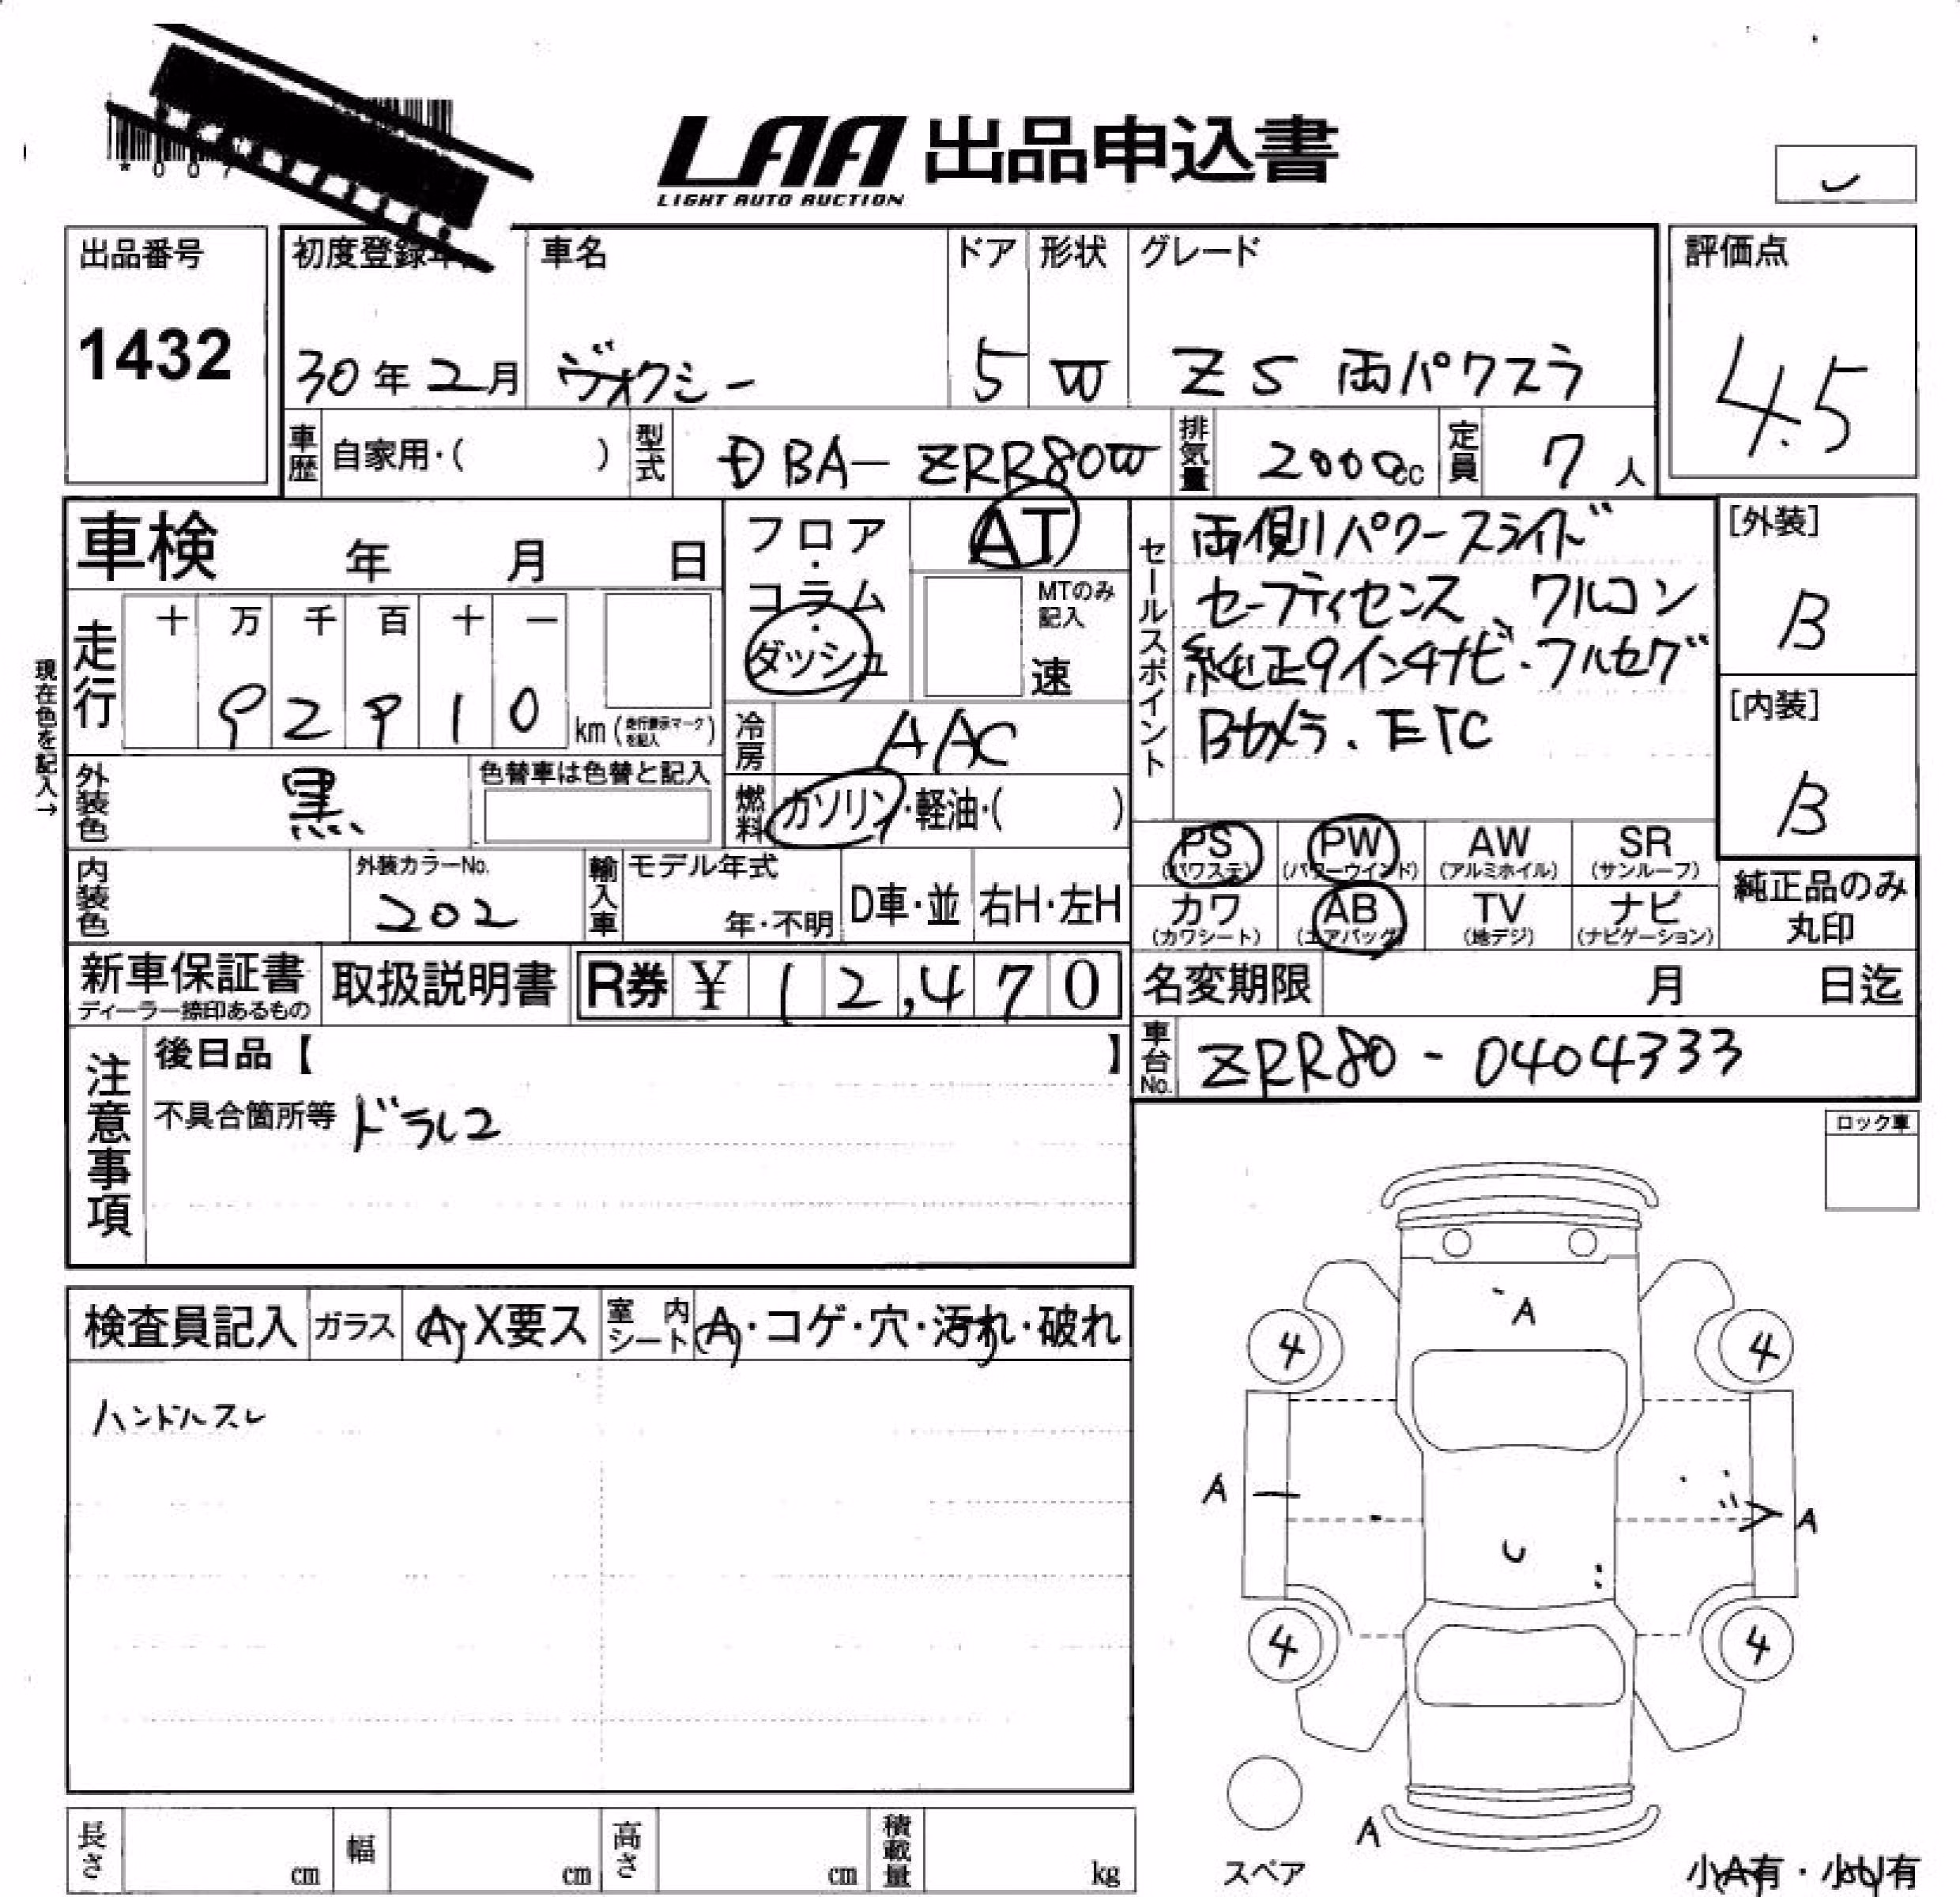 LAA 出品申込書
LIGHT AUTO AUCTION
出品番号
1432
初度登録年
30年2月
車名
ヴォクシー
ドア
5
形状
W
グレード
ZS 両パワスラ
評価点
4.5
車歴 自家用・( )
型式 DBA-ZRR80W
排気量 2000cc
定員 7人
車検 年 月 日
フロア・コラム・ダッシュ
AT
MTのみ記入
速
セールスポイント
両側パワースライド
セーフティセンス、ワルコン
純正9インチナビ・フルセグ
Bカメラ、ETC
[外装]
B
[内装]
B
現在色を記入→
走行
十 万 千 百 十 一
9 2 9 1 0 km (走行表示マークを記入)
冷房 AAC
外装色 黒
色替車は色替と記入
燃料 ガソリン・軽油・( )
PS (パワステ)
PW (パワーウインド)
AW (アルミホイル)
SR (サンルーフ)
カワ (カワシート)
AB (エアバッグ)
TV (地デジ)
ナビ (ナビゲーション)
純正品のみ丸印
内装色
外装カラーNo.
202
輸入車
モデル年式
年・不明
D車・並
右H・左H
新車保証書
ディーラー捺印あるもの
取扱説明書
R券 ¥ 12,470
名変期限 月 日迄
車台No. ZRR80-0404333
注意事項
後日品【 】
不具合箇所等 ドラレコ
ロック車
検査員記入
ガラス A・X要ス
室内シート A・コゲ・穴・汚れ・破れ
ハンドルスレ
A
4 4
A A
U
4 4
A
スペア
小A有・小U有
長さ cm
幅 cm
高さ cm
積載量 kg